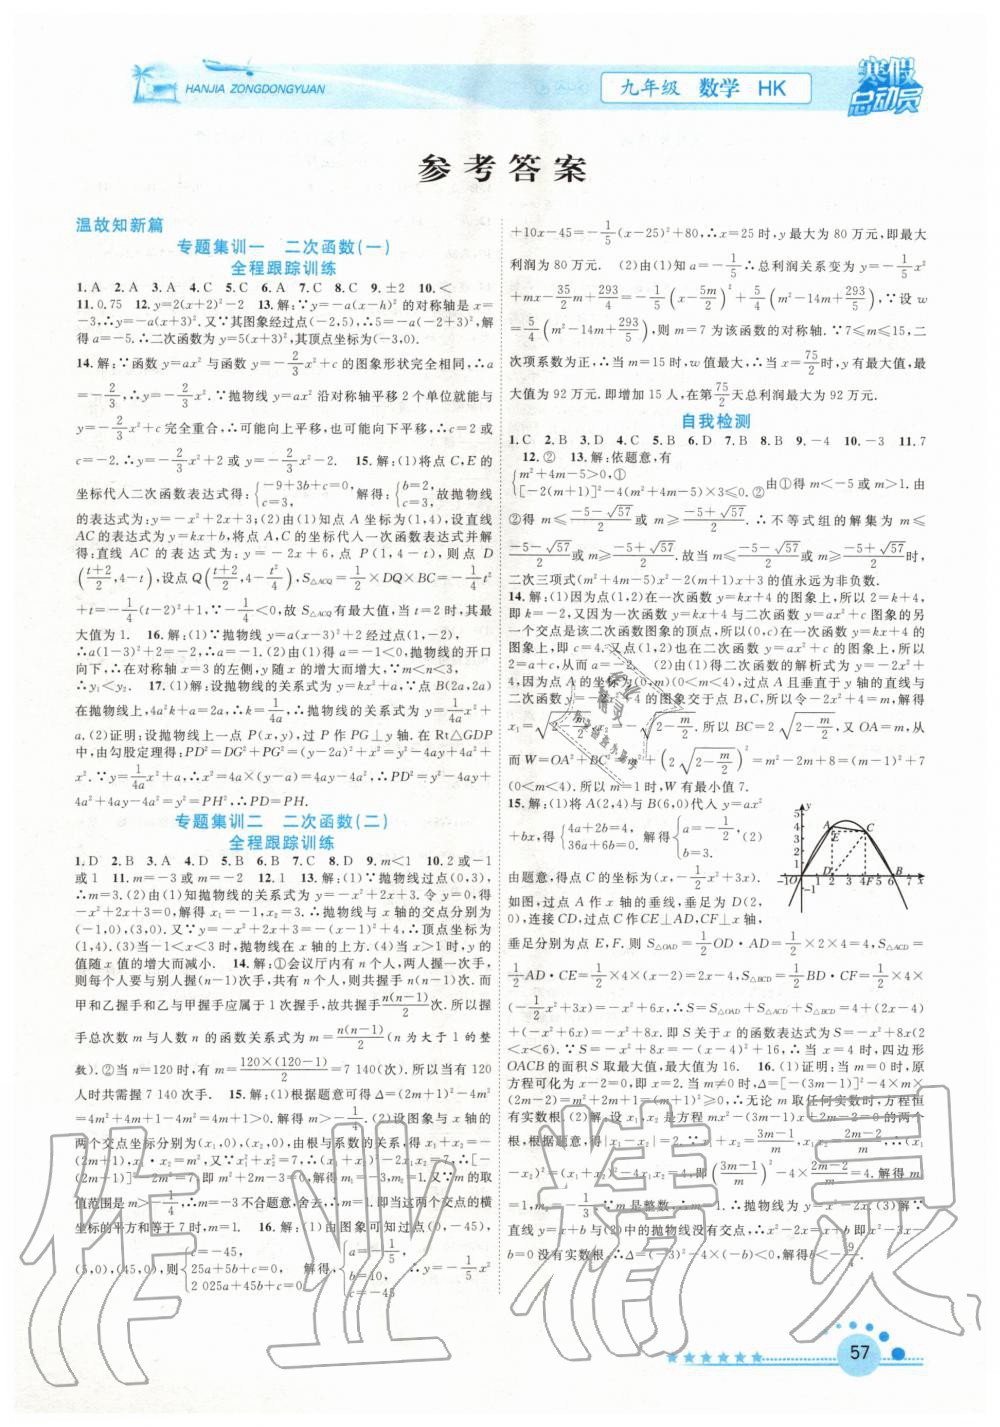 HANJIA ZONGDONGYUAN
九年级 数学 HK
寒假
总动员
参考答案
温故知新篇
专题集训一 二次函数(一)
全程跟踪训练
1. A 2. A 3. A 4. A 5. A 6. C 7. C 8. C 9. ±2 10. <
11. 0.75 12. y=2(x+2)²-2 13. 解:∵y=-a(x-h)² 的对称轴是 x=
-3,∴y=-a(x+3)². 又∵其图象经过点(-2,5),∴5=-a(-2+3)²,解
得 a=-5. ∴二次函数为 y=5(x+3)²,其顶点坐标为(-3,0).
14. 解:∵函数 y=ax² 与函数 y=-2/3x²+c 的图象形状完全相同,∴a
=-2/3,∴y=-2/3x². ∵抛物线 y=ax² 沿对称轴平移 2 个单位就能与
y=-2/3x²+c 完全重合,∴可能向上平移,也可能向下平移,∴c=2 或
c=-2. ∴y=-2/3x²+2 或 y=-2/3x²-2. 15. 解:(1)将点 C,E 的
坐标代入二次函数表达式得:{-9+3b+c=0, c=3, 解得:{b=2, c=3, 故抛物线
的表达式为:y=-x²+2x+3;(2)由(1)知点 A 坐标为(1,4),设直线
AC 的表达式为:y=kx+b,将点 A,C 坐标代入一次函数表达式并解
得:直线 AC 的表达式为:y=-2x+6,点 P(1,4-t),则点 D
((t+2)/2,4-t),设点 Q((t+2)/2,4-t²/4),S△ACQ=1/2×DQ×BC=-1/4t²
+t=-1/4(t-2)²+1,∵-1/4<0,故 S△ACQ 有最大值,当 t=2 时,其最
大值为 1. 16. 解:(1)∵抛物线 y=a(x-3)²+2 经过点(1,-2),
∴a(1-3)²+2=-2,∴a=-1. (2)由(1)得 a=-1<0,抛物线的开口
向下,∴在对称轴 x=3 的左侧,y 随 x 的增大而增大,∵m<n<3,
∴y₁<y₂. 17. (1)解:设抛物线的关系式为 y=kx²,∵点 B(2a,2a)
在抛物线上,4a²k+a=2a,∴k=1/4a,∴抛物线的关系式为 y=1/4ax²+
a. (2)证明:设抛物线上一点 P(x,y),过 P 作 PG⊥y 轴. 在 Rt△GDP
中,由勾股定理得:PD²=DG²+PG²=(y-2a)²+x²=y²-4ay+4a²+
x². ∵y=1/4ax²+a,∴x²=4a×(y-a)=4ay-4a²,∴PD²=y²-4ay+
4a²+4ay-4a²=y²=PH²,∴PD=PH.
专题集训二 二次函数(二)
全程跟踪训练
1. D 2. B 3. A 4. D 5. B 6. B 7. C 8. D 9. m<1 10. 2或-1
或1 11. m=-3 或 m=-2 12. 1 13. 解:(1)∵抛物线过点(0,3),
∴m=3. (2)由(1)知抛物线的关系式为 y=-x²+2x+3. 令 y=0,得
-x²+2x+3=0,解得 x₁=-1,x₂=3,∴抛物线与 x 轴的交点分别为
(-1,0),(3,0). ∵y=-x²+2x+3=-(x-1)²+4,∴抛物线顶点为
(1,4). (3)当-1<x<3 时,抛物线在 x 轴的上方. (4)当 x>1 时,y 的
值随 x 值的增大而减小. 14. 解:①会议厅内有 n 个人,两人握一次手,
则每个人要与别人握(n-1)次手,共有 n 个人,则共握手 n(n-1)次. 而
甲和乙握手和乙与甲握手应属于 1 次握手,故共握手n(n-1)/2次. 所以握
手总次数 m 与人数 n 的函数关系式为 m=n(n-1)/2(n 为大于 1 的整
数). ②当 n=120 时,有 m=120×(120-1)/2=7 140(次). 所以当有 120
人时共需握 7 140 次手. 15. 解:(1)根据题意可得:Δ=(2m+1)²-
4m²=4m²+4m+1-4m²=4m+1>0,解得 m>-1/4. (2)设图象与 x 轴的
两个交点坐标分别为(x₁,0),(x₂,0),由根与系数的关系,得 x₁+x₂=-
(2m+1),x₁·x₂=m². 又∵x₁²+x₂²=7,∴(x₁+x₂)²-2x₁x₂=7,∴[-
(2m+1)]²-2m²=7,即 m²+2m-3=0,解得 m₁=-3,m₂=1. 又∵m 的
取值范围是 m>-1/4,∴m=-3 不合题意,舍去,∴m=1,即当这两个交点的横
坐标的平方和等于 7 时,m=1. 16. 解:(1)由图象可知过点(0,-45),
(5,0),(45,0),则{c=-45, 25a+5b+c=0, 2 025a+45b+c=0 解得,{a=-1/5, b=10, c=-45 ∴y=-1/5x²
+10x-45=-1/5(x-25)²+80,∴x=25 时,y 最大为 80 万元,即最大
利润为 80 万元. (2)由(1)知 a=-1/5,∴总利润关系变为 y=-1/5x²
+mx-35/2m+293/4=-1/5(x-5m/2)²+5/4(m²-14m+293/5),∵设 w
=5/4(m²-14m+293/5),则 m=7 为该函数的对称轴. ∵7≤m≤15,二
次项系数为正,∴当 m=15 时,w 值最大,∴当 x=75/2时,y 有最大值,最
大值为 92 万元. 即增加 15 人,在第75/2天总利润最大为 92 万元.
自我检测
1. C 2. B 3. D 4. C 5. B 6. D 7. B 8. B 9. -4 10. -3 11. 7
12. ② 13. 解:依题意,有
{m²+4m-5>0,① [-2(m+1)]²-4(m²+4m-5)×3≤0.② 由①得 m<-5 或 m>1. 由
②得 m≤(-5-√57)/2或 m≥(-5+√57)/2. ∴不等式组的解集为 m≤
(-5-√57)/2或 m≥(-5+√57)/2. 故当 m≤(-5-√57)/2或 m≥(-5+√57)/2时,
二次三项式(m²+4m-5)x²-2(m+1)x+3 的值永远为非负数.
14. 解:(1)因为点(1,2)在一次函数 y=kx+4 的图象上,所以 2=k+4,
即 k=-2,又因为一次函数 y=kx+4 与二次函数 y=ax²+c 图象的另
一个交点是该二次函数图象的顶点,所以(0,c)在一次函数 y=kx+4 的
图象上,即 c=4. 又点(1,2)也在二次函数 y=ax²+c 的图象上,所以
2=a+c,从而 a=-2. (2)由(1)得二次函数的解析式为 y=-2x²
+4,因为点 A 的坐标为(0,m)(0<m<4),过点 A 且垂直于 y 轴的直线与
二次函数 y=-2x²+4 的图象交于点 B,C,所以令-2x²+4=m,解得
x₁=√(2-m/2),x₂=-√(2-m/2). 所以 BC=2√(2-m/2),又 OA=m,从
而 W=OA²+BC²=m²+(2√(2-m/2))²=m²-2m+8=(m-1)²+7
(0<m<4). 所以 m=1 时,W 有最小值 7.
15. 解:(1)将 A(2,4)与 B(6,0)代入 y=ax²
+bx,得{4a+2b=4, 36a+6b=0. 解得{a=-1/2, b=3. (2)
由题意,得点 C 的坐标为(x,-1/2x²+3x).
如图,过点 A 作 x 轴的垂线,垂足为 D(2,
0),连接 CD,过点 C 作 CE⊥AD,CF⊥x 轴,
垂足分别为点 E,F. 则 S△OAD=1/2OD·AD=1/2×2×4=4,S△ACD=
1/2AD·CE=1/2×4×(x-2)=2x-4,S△BCD=1/2BD·CF=1/2×4×
(-1/2x²+3x)=-x²+6x,∴S=S△OAD+S△ACD+S△BCD=4+(2x-4)
+(-x²+6x)=-x²+8x. 即 S 关于 x 的函数表达式为 S=-x²+8x(2
<x<6). ∵S=-x²+8x=-(x-4)²+16,∴当 x=4 时,四边形
OACB 的面积 S 取最大值,最大值为 16. 16. (1)证明:当 m=0 时,原
方程可化为 x-2=0,即 x=2. 当 m≠0 时,Δ=[-(3m-1)]²-4×m×
(2m-2)=m²+2m+1=(m+1)²≥0,∴无论 m 取任何实数时,方程恒
有实数根. (2)解:设 x₁,x₂ 是方程 mx²-(3m-1)x+2m-2=0 的两个
根,根据题意,得|x₁-x₂|=2. ∵x₁+x₂=(3m-1)/m,x₁x₂=(2m-2)/m. ∴(x₁
-x₂)²=(x₁+x₂)²-4x₁x₂=4,即((3m-1)/m)²-4×(2m-2)/m=4. 解得 m₁
=1,m₂=-1/3. ∵m 是整数,∴m=1. ∴抛物线为 y=x²-2x. (3)解:∵
直线 y=x+b 与(2)中的抛物线没有交点,∴x²-2x=x+b 即 x²-3x-
b=0 没有实数根. ∴Δ=(-3)²-4×(-b)<0,解得b<-9/4.
y
5
4
3
2
1
-1
O
-1
1 2 3 4 5 6 7 x
A
C
E
D
F
B
作业精灵
57